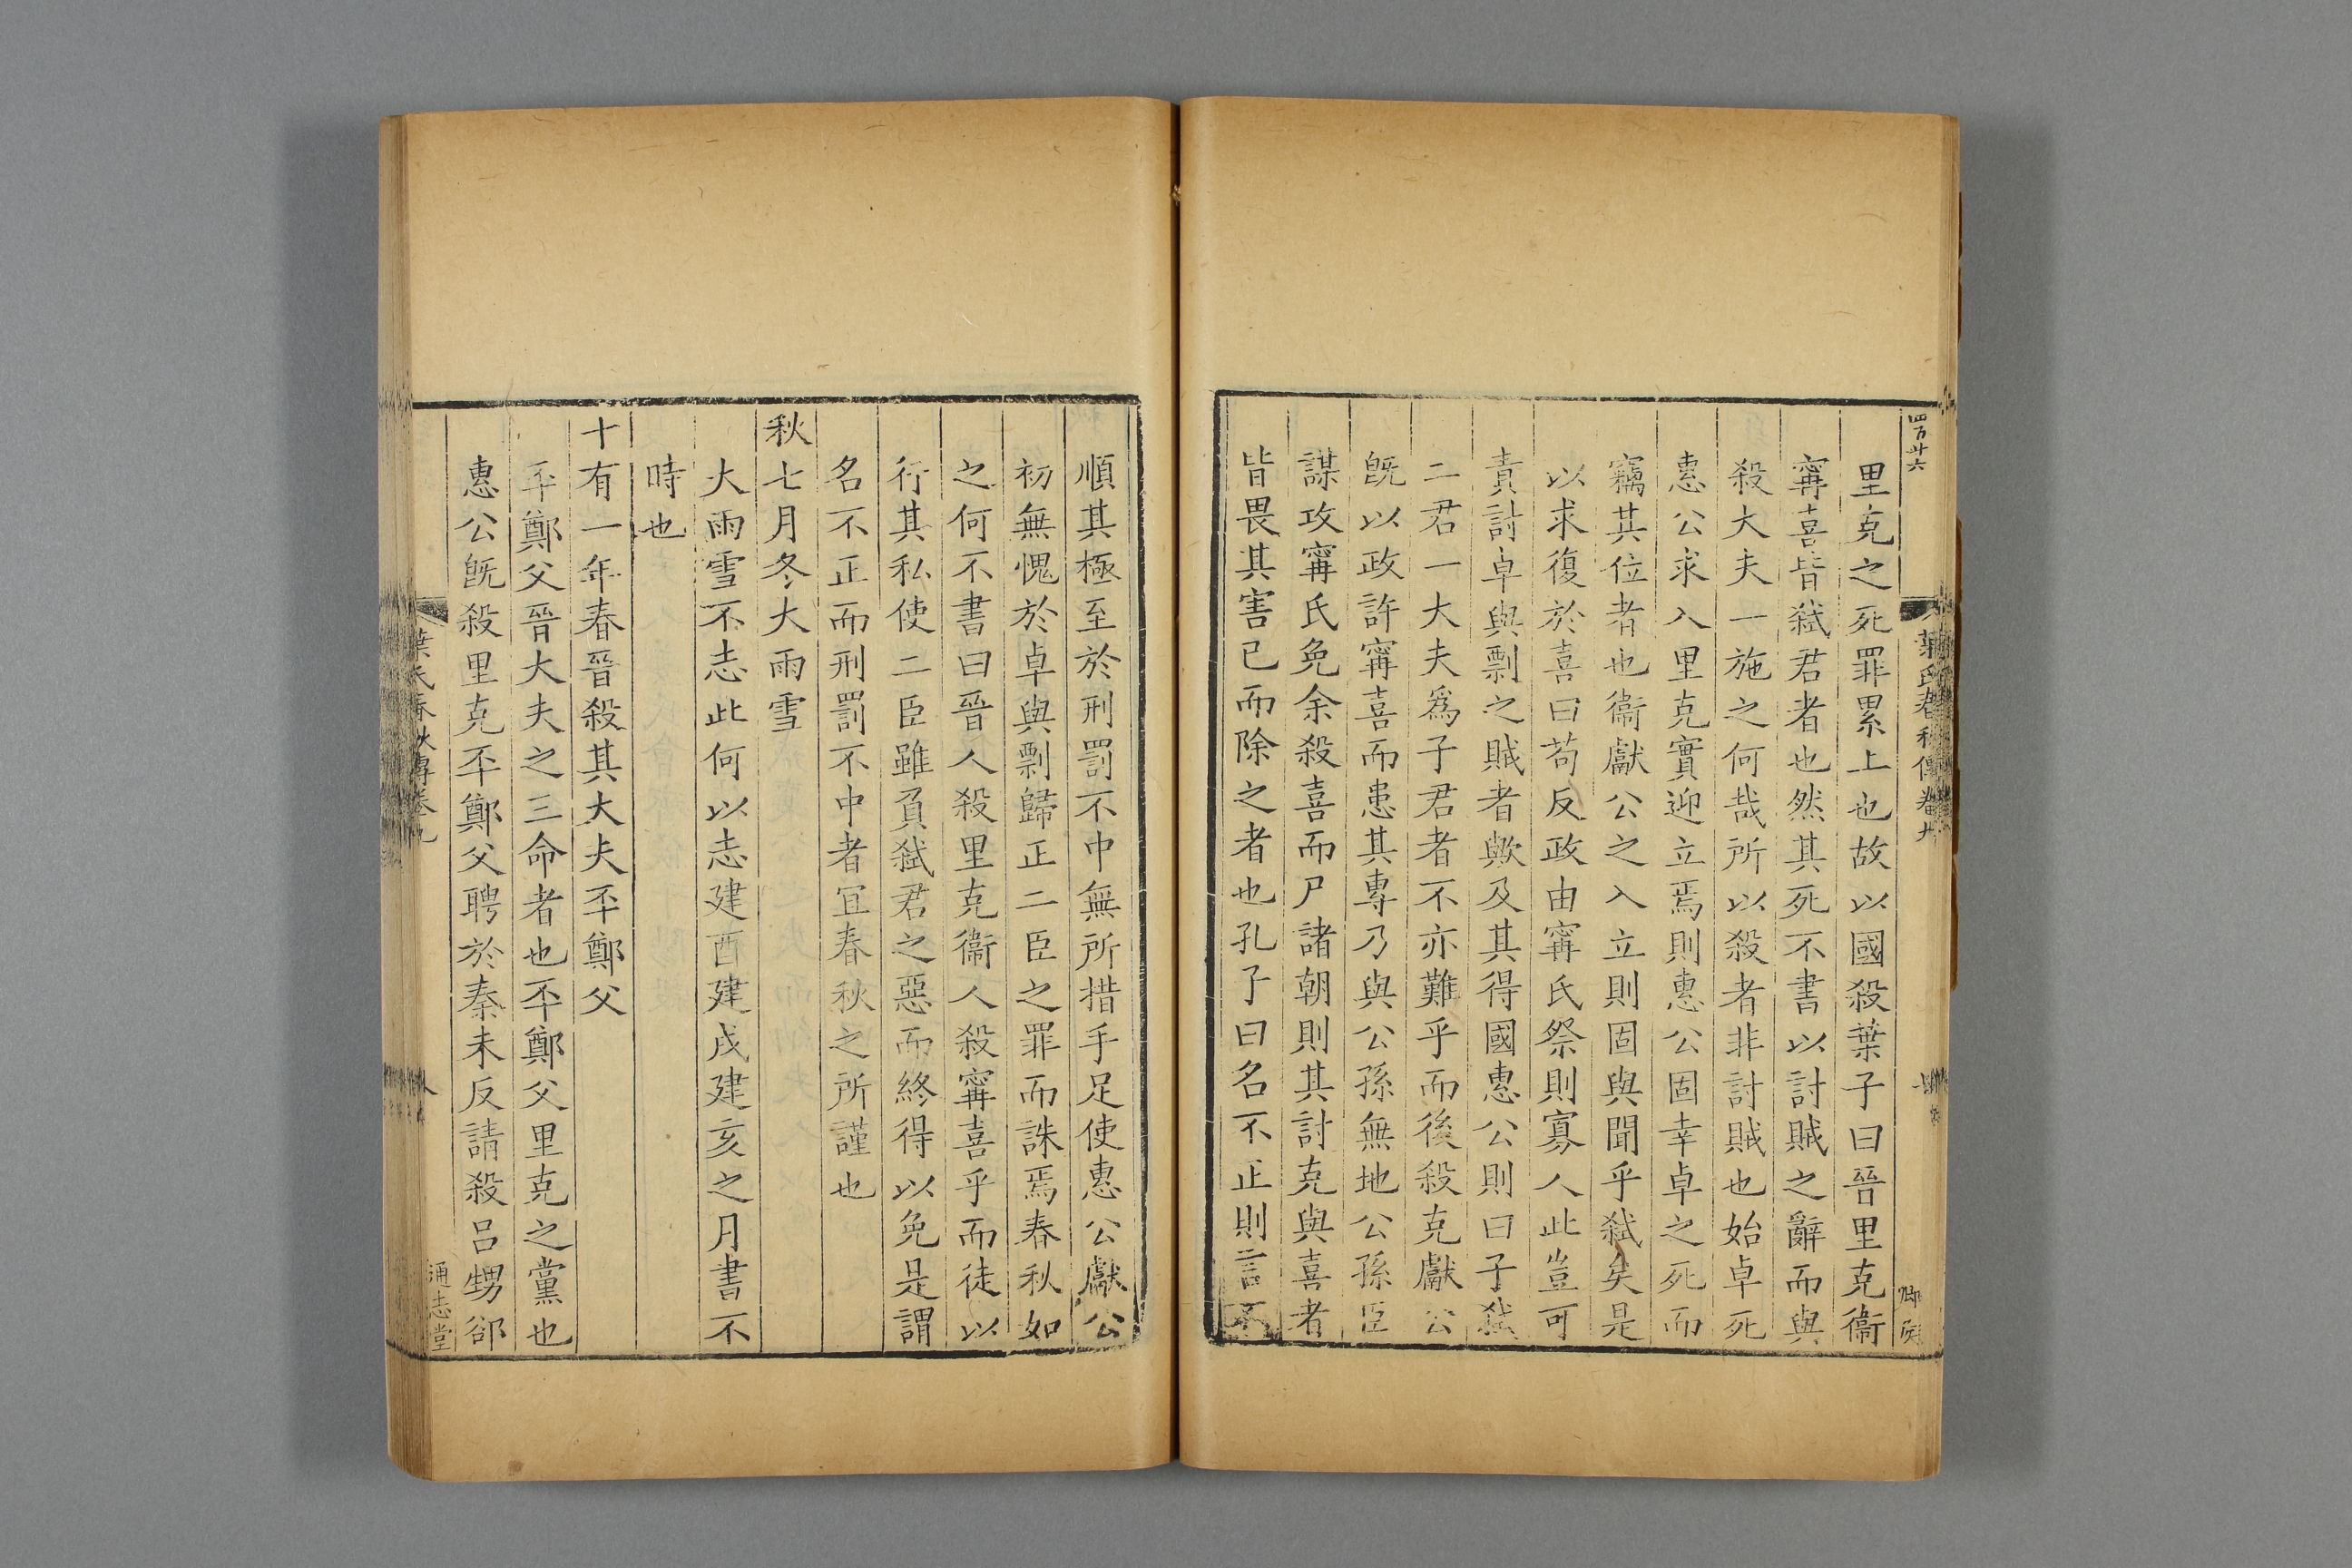 四百廿六
里克之死罪累上也故以國殺葉子曰晉里克衞
甯喜皆弑君者也然其死不書以討賊之辭而與
殺大夫一施之何哉所以殺者非討賊也始卓死
惠公求入里克實迎立焉則惠公固幸卓之死而
竊其位者也衞獻公之入立則固與聞乎弑矣是
以求復於喜曰苟反政由甯氏祭則寡人此豈可
責討卓與剽之賊者歟及其得國惠公則曰子弑
二君一大夫爲子君者不亦難乎而後殺克獻公
旣以政許甯喜而患其專乃與公孫無地公孫臣
謀攻甯氏免余殺喜而尸諸朝則其討克與喜者
皆畏其害已而除之者也孔子曰名不正則言不
順其極至於刑罰不中無所措手足使惠公獻公
初無愧於卓與剽歸正二臣之罪而誅焉春秋如
之何不書曰晉人殺里克衞人殺甯喜乎而徒以
行其私使二臣雖負弑君之惡而終得以免是謂
名不正而刑罰不中者宜春秋之所謹也
秋七月冬大雨雪
大雨雪不志此何以志建酉建戌建亥之月書不
時也
十有一年春晉殺其大夫丕鄭父
丕鄭父晉大夫之三命者也丕鄭父里克之黨也
惠公旣殺里克丕鄭父聘於秦未反請殺呂甥郤
葉氏春秋傳卷九
八
通志堂